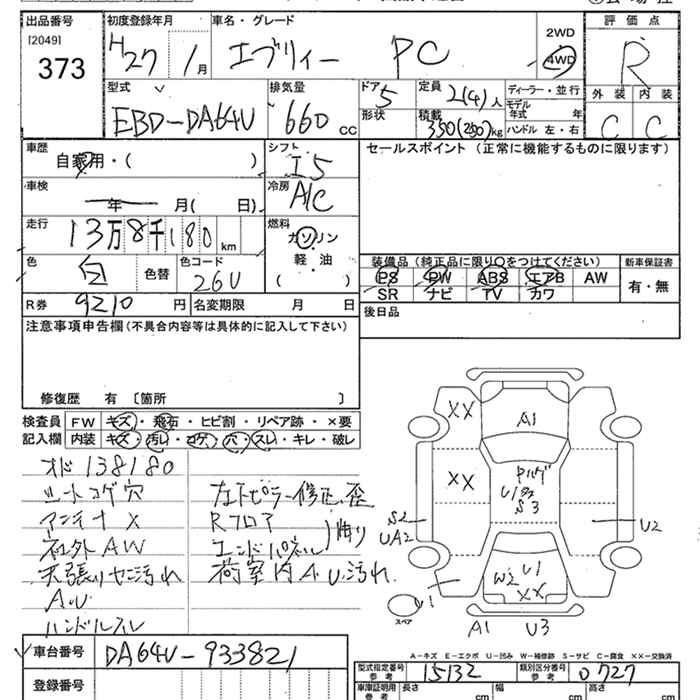 出品番号 初度登録年月 車名・グレード 2WD 評価点
[2049] 373 H27 / 1月 エブリィー PC 4WD R
型式 排気量 ドア 5 定員 2(4)人 ディーラー・並行 外装 内装
EBD-DA64V 660 cc 形状 積載 350(250)kg モデル年式 年 C C
ハンドル 左・右
車歴 シフト セールスポイント (正常に機能するものに限ります)
自家用・( ) I5
車検 冷房
年 月( 日) A/C
走行 燃料
13万8千180 km ガソリン
軽・油
( )
色 白 色替 色コード 26U
装備品 (純正品に限り○をつけてください) 新車保証書
PS PW ABS エアB AW 有・無
SR ナビ TV カワ
R券 9210 円 名変期限 月 日
後日品
注意事項申告欄 (不具合内容等は具体的に記入して下さい)
修復歴 有 〔箇所 〕
検査員 FW キズ・飛石・ヒビ割・リペア跡・×要
記入欄 内装 キズ・汚レ・コゲ・穴・スレ・キレ・破レ
オド 138180
シートコゲ穴
アンテナ X
社外AW
天張りヤニ汚れ
AU
ハンドルスレ
左下ピラー修正歪
Rフロア
エンドパネル
曲り
荷室内A.U.汚れ
XX
A1
XX
ヤルゲ
U1多
S3
S2
UA2
U2
U1
W2
XX
U1
スペア
A1 U3
A-キズ E-エクボ U-凹み W-補修跡 S-サビ C-腐食 XX-交換済
車台番号 DA64V-933821
登録番号
型式指定番号 参考 15132 類別区分番号 参考 0727
車庫証明用 参考 長さ cm 幅 cm 高さ cm